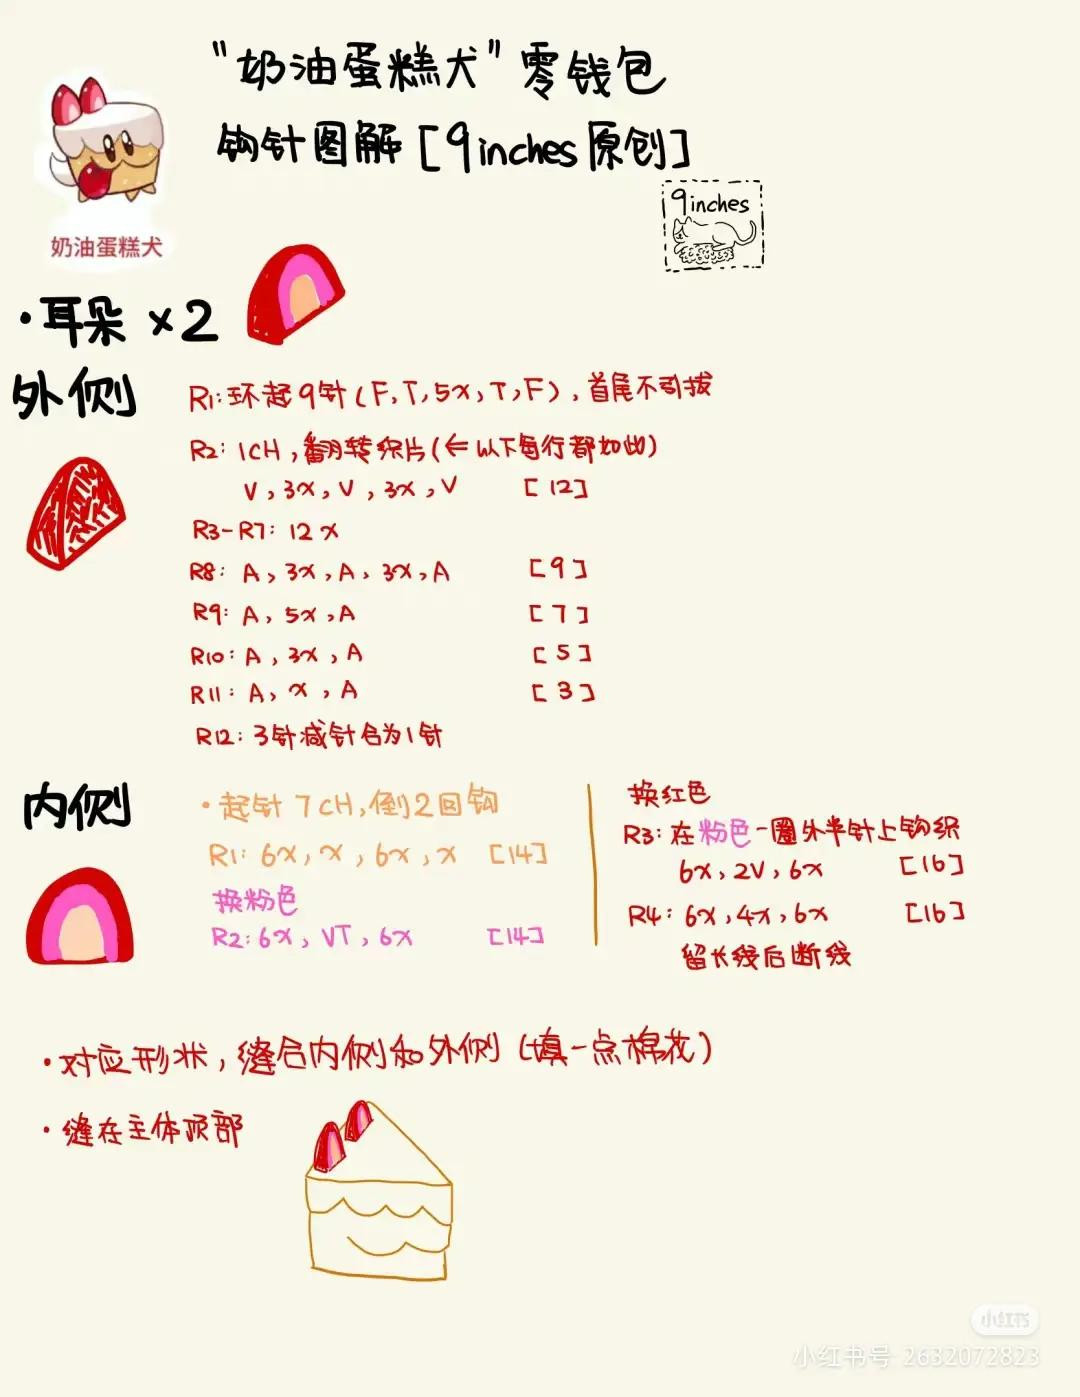 “奶油蛋糕犬”零钱包
钩针图解[9inches原创]
9inches
奶油蛋糕犬
·耳朵 x2
外侧
R1:环起9针(F,T,5x,T,F),首尾不引拔
R2: 1CH,翻转织片(←以下每行都如此)
V,3x,V,3x,V [12]
R3-R7: 12x
R8: A,3x,A,3x,A [9]
R9: A,5x,A [7]
R10: A,3x,A [5]
R11: A,x,A [3]
R12: 3针减针合为1针
内侧
·起针7CH,倒2回钩
R1: 6x,x,6x,x [14]
换粉色
R2: 6x,VT,6x [14]
换红色
R3: 在粉色一圈外半针上钩织
6x,2V,6x [16]
R4: 6x,4x,6x [16]
留长线后断线
·对应形状,缝合内侧和外侧(填一点棉花)
·缝在主体顶部
小红书
小红书号 2632072823